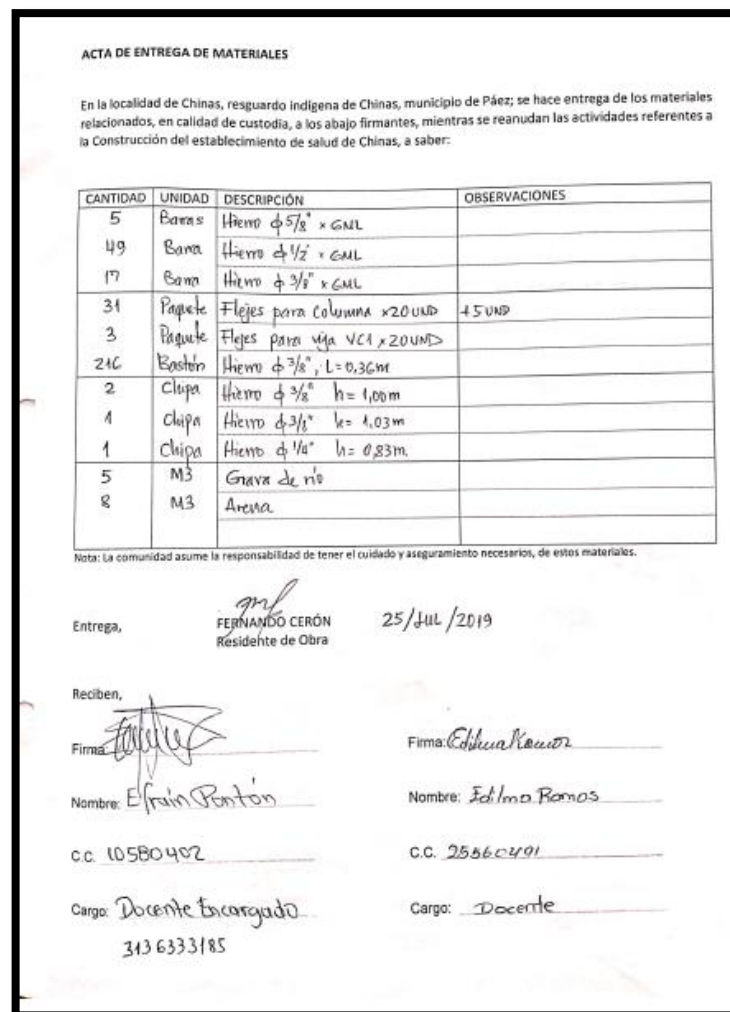 ACTA DE ENTREGA DE MATERIALES
En la localidad de Chinas, resguardo indígena de Chinas, municipio de Páez; se hace entrega de los materiales
relacionados, en calidad de custodia, a los abajo firmantes, mientras se reanudan las actividades referentes a
la Construcción del establecimiento de salud de Chinas, a saber:
CANTIDAD UNIDAD DESCRIPCIÓN OBSERVACIONES
5 Barras Hierro φ 5/8" x 6ML
49 Barra Hierro φ 1/2" x 6ML
17 Barra Hierro φ 3/8" x 6ML
31 Paquete Flejes para Columna x20 UND +5 UND
3 Paquete Flejes para viga VC1 x 20UND
216 Bastón Hierro φ 3/8", L=0,36m
2 Chipa Hierro φ 3/8" h= 1,00m
1 Chipa Hierro φ 3/8" h= 1,03m
1 Chipa Hierro φ 1/4" h= 0,83m.
5 M3 Grava de río
8 M3 Arena
Nota: La comunidad asume la responsabilidad de tener el cuidado y aseguramiento necesarios, de estos materiales.
Entrega, FERNANDO CERÓN 25/JUL/2019
Residente de Obra
Reciben,
Firma: Firma: Edilma Ramos
Nombre: Efraín Pontón Nombre: Edilma Ramos
C.C. 10580402 C.C. 25560491
Cargo: Docente Encargado Cargo: Docente
3136333185